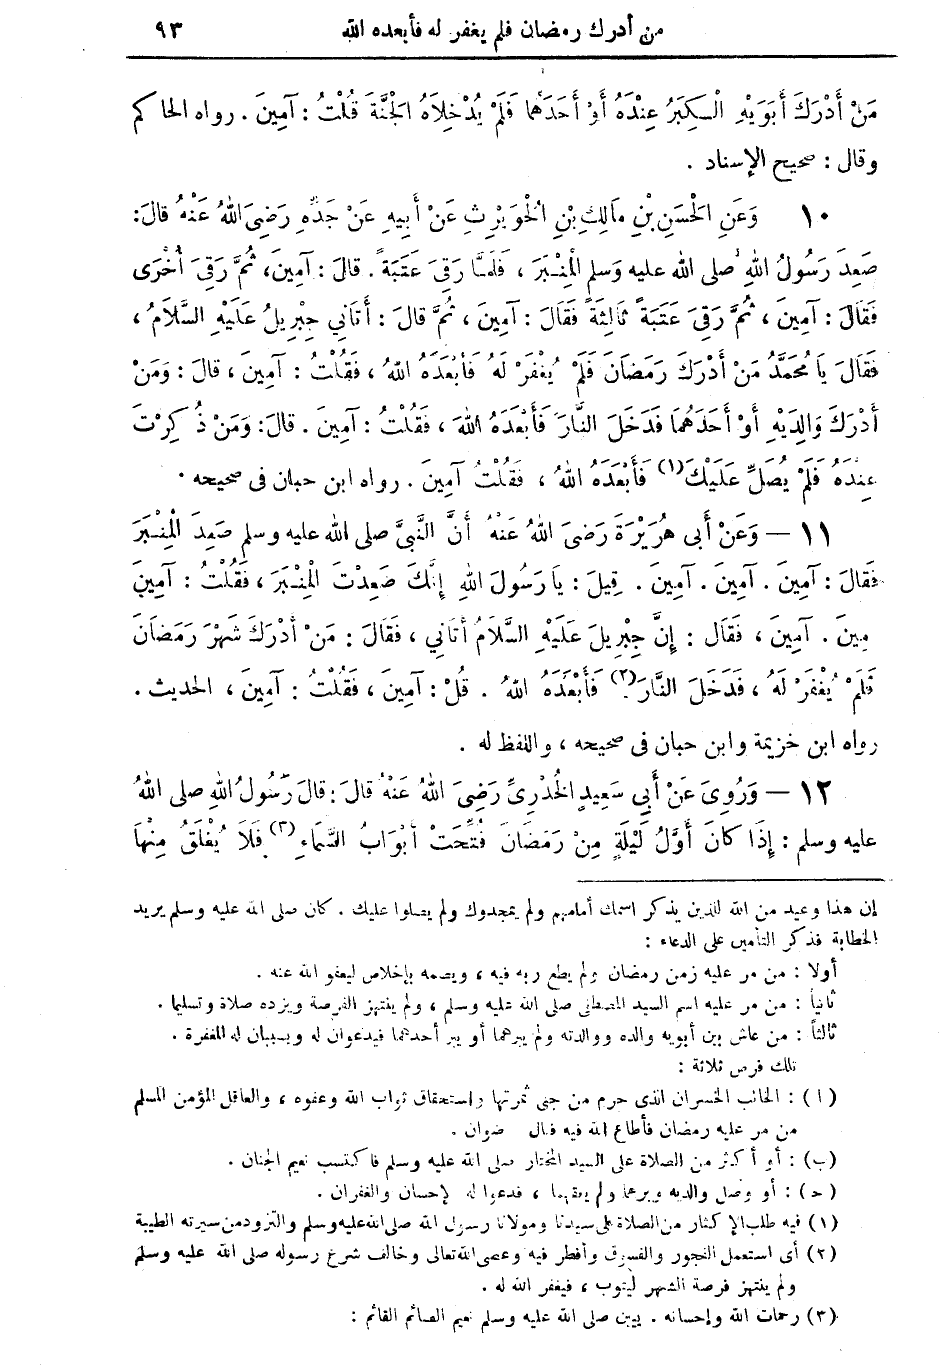 من أدرك رمضان فلم يغفر له فأبعده الله ٩٣
مَنْ أَدْرَكَ أَبَوَيْهِ الْكِبَرُ عِنْدَهُ أَوْ أَحَدَهُمَا فَلَمْ يُدْخِلَاهُ الْجَنَّةَ قُلْتُ : آمِينَ . رواه الحاكم
وقال : صحيح الإسناد .
١٠ وَعَنِ الْحَسَنِ بْنِ مَالِكِ بْنِ الْحُوَيْرِثِ عَنْ أَبِيهِ عَنْ جَدِّهِ رَضِيَ اللهُ عَنْهُ قَالَ:
صَعِدَ رَسُولُ اللهِ صلى الله عليه وَسلم الْمِنْبَرَ ، فَلَمَّا رَقِيَ عَتَبَةً . قَالَ : آمِينَ، ثُمَّ رَقِيَ أُخْرَى
فَقَالَ : آمِينَ ، ثُمَّ رَقِيَ عَتَبَةً ثَالِثَةً فَقَالَ : آمِينَ ، ثُمَّ قَالَ : أَتَانِي جِبْرِيلُ عَلَيْهِ السَّلَامُ ،
فَقَالَ يَا مُحَمَّدُ مَنْ أَدْرَكَ رَمَضَانَ فَلَمْ يُغْفَرْ لَهُ فَأَبْعَدَهُ اللهُ ، فَقُلْتُ : آمِينَ ، قَالَ : وَمَنْ
أَدْرَكَ وَالِدَيْهِ أَوْ أَحَدَهُمَا فَدَخَلَ النَّارَ فَأَبْعَدَهُ اللهُ ، فَقُلْتُ : آمِينَ . قَالَ: وَمَنْ ذُكِرْتَ
عِنْدَهُ فَلَمْ يُصَلِّ عَلَيْكَ (١) فَأَبْعَدَهُ اللهُ ، فَقُلْتُ آمِينَ . رواه ابن حبان فى صحيحه .
١١ — وَعَنْ أَبِى هُرَيْرَةَ رَضِيَ اللهُ عَنْهُ أَنَّ النَّبِيَّ صلى الله عليه وسلم صَعِدَ الْمِنْبَرَ
فَقَالَ : آمِينَ . آمِينَ . آمِينَ . قِيلَ : يَا رَسُولَ اللهِ إِنَّكَ صَعِدْتَ الْمِنْبَرَ ، فَقُلْتُ : آمِينَ
مِينَ . آمِينَ ، فَقَال : إِنَّ جِبْرِيلَ عَلَيْهِ السَّلَامُ أَتَانِي ، فَقَالَ : مَنْ أَدْرَكَ شَهْرَ رَمَضَانَ
فَلَمْ يُغْفَرْ لَهُ ، فَدَخَلَ النَّارَ (٢) فَأَبْعَدَهُ اللهُ . قُلْ : آمِينَ ، فَقُلْتُ : آمِينَ ، الحديث .
رواه ابن خزيمة وابن حبان فى صحيحه ، واللفظ له .
١٢ — وَرُوِىَ عَنْ أَبِي سَعِيدٍ الْخُدْرِىِّ رَضِيَ اللهُ عَنْهُ قَالَ : قَالَ رَسُولُ اللهِ صلى اللهُ
عليه وسلم : إِذَا كَانَ أَوَّلُ لَيْلَةٍ مِنْ رَمَضَانَ فُتِّحَتْ أَبْوَابُ السَّمَاءِ (٣) فَلَا يُغْلَقُ مِنْهَا
إن هذا وعيد من الله للذين يذكر اسمك أمامهم ولم يمجدوك ولم يصلوا عليك . كان صلى الله عليه وسلم يريد
الخطابة فذكر التأمين على الدعاء :
أولا : من مر عليه زمن رمضان ولم يطع ربه فيه ، ويصمه بإخلاص ليعفو الله عنه .
ثانياً : من مر عليه اسم السيد المصطفى صلى الله عليه وسلم ، ولم ينتهز الفرصة ويزده صلاة وتسليما .
ثالثاً : من عاش بين أبويه والده ووالدته ولم يبرهما أو يبر أحدهما فيدعوان له ويسببان له المغفرة .
تلك فرص ثلاثة :
(١) : الخائب الخسران الذى حرم من جنى ثمرتها واستحقاق ثواب الله وعفوه ، والعاقل المؤمن المسلم
من مر عليه رمضان فأطاع الله فيه فنال ضوان .
(ب) : أو أكثر من الصلاة على السيد المختار صلى الله عليه وسلم فاكتسب نعيم الجنان .
(ح) : أو وصل والديه وبرهما ولم يعقهما ، فدعوا له لإحسان والغفران .
(١) فيه طلب الإكثار من الصلاة على سيدنا ومولانا رسول الله صلى الله عليه وسلم والتزود من سيرته الطيبة
(٢) أى استعمل الفجور والفسوق وأفطر فيه وعصى الله تعالى وخالف شرع رسوله صلى الله عليه وسلم
ولم ينتهز فرصة الشهر ليتوب ، فيغفر الله له .
(٣) رحمات الله وإحسانه . يبين صلى الله عليه وسلم نعيم الصائم القائم :